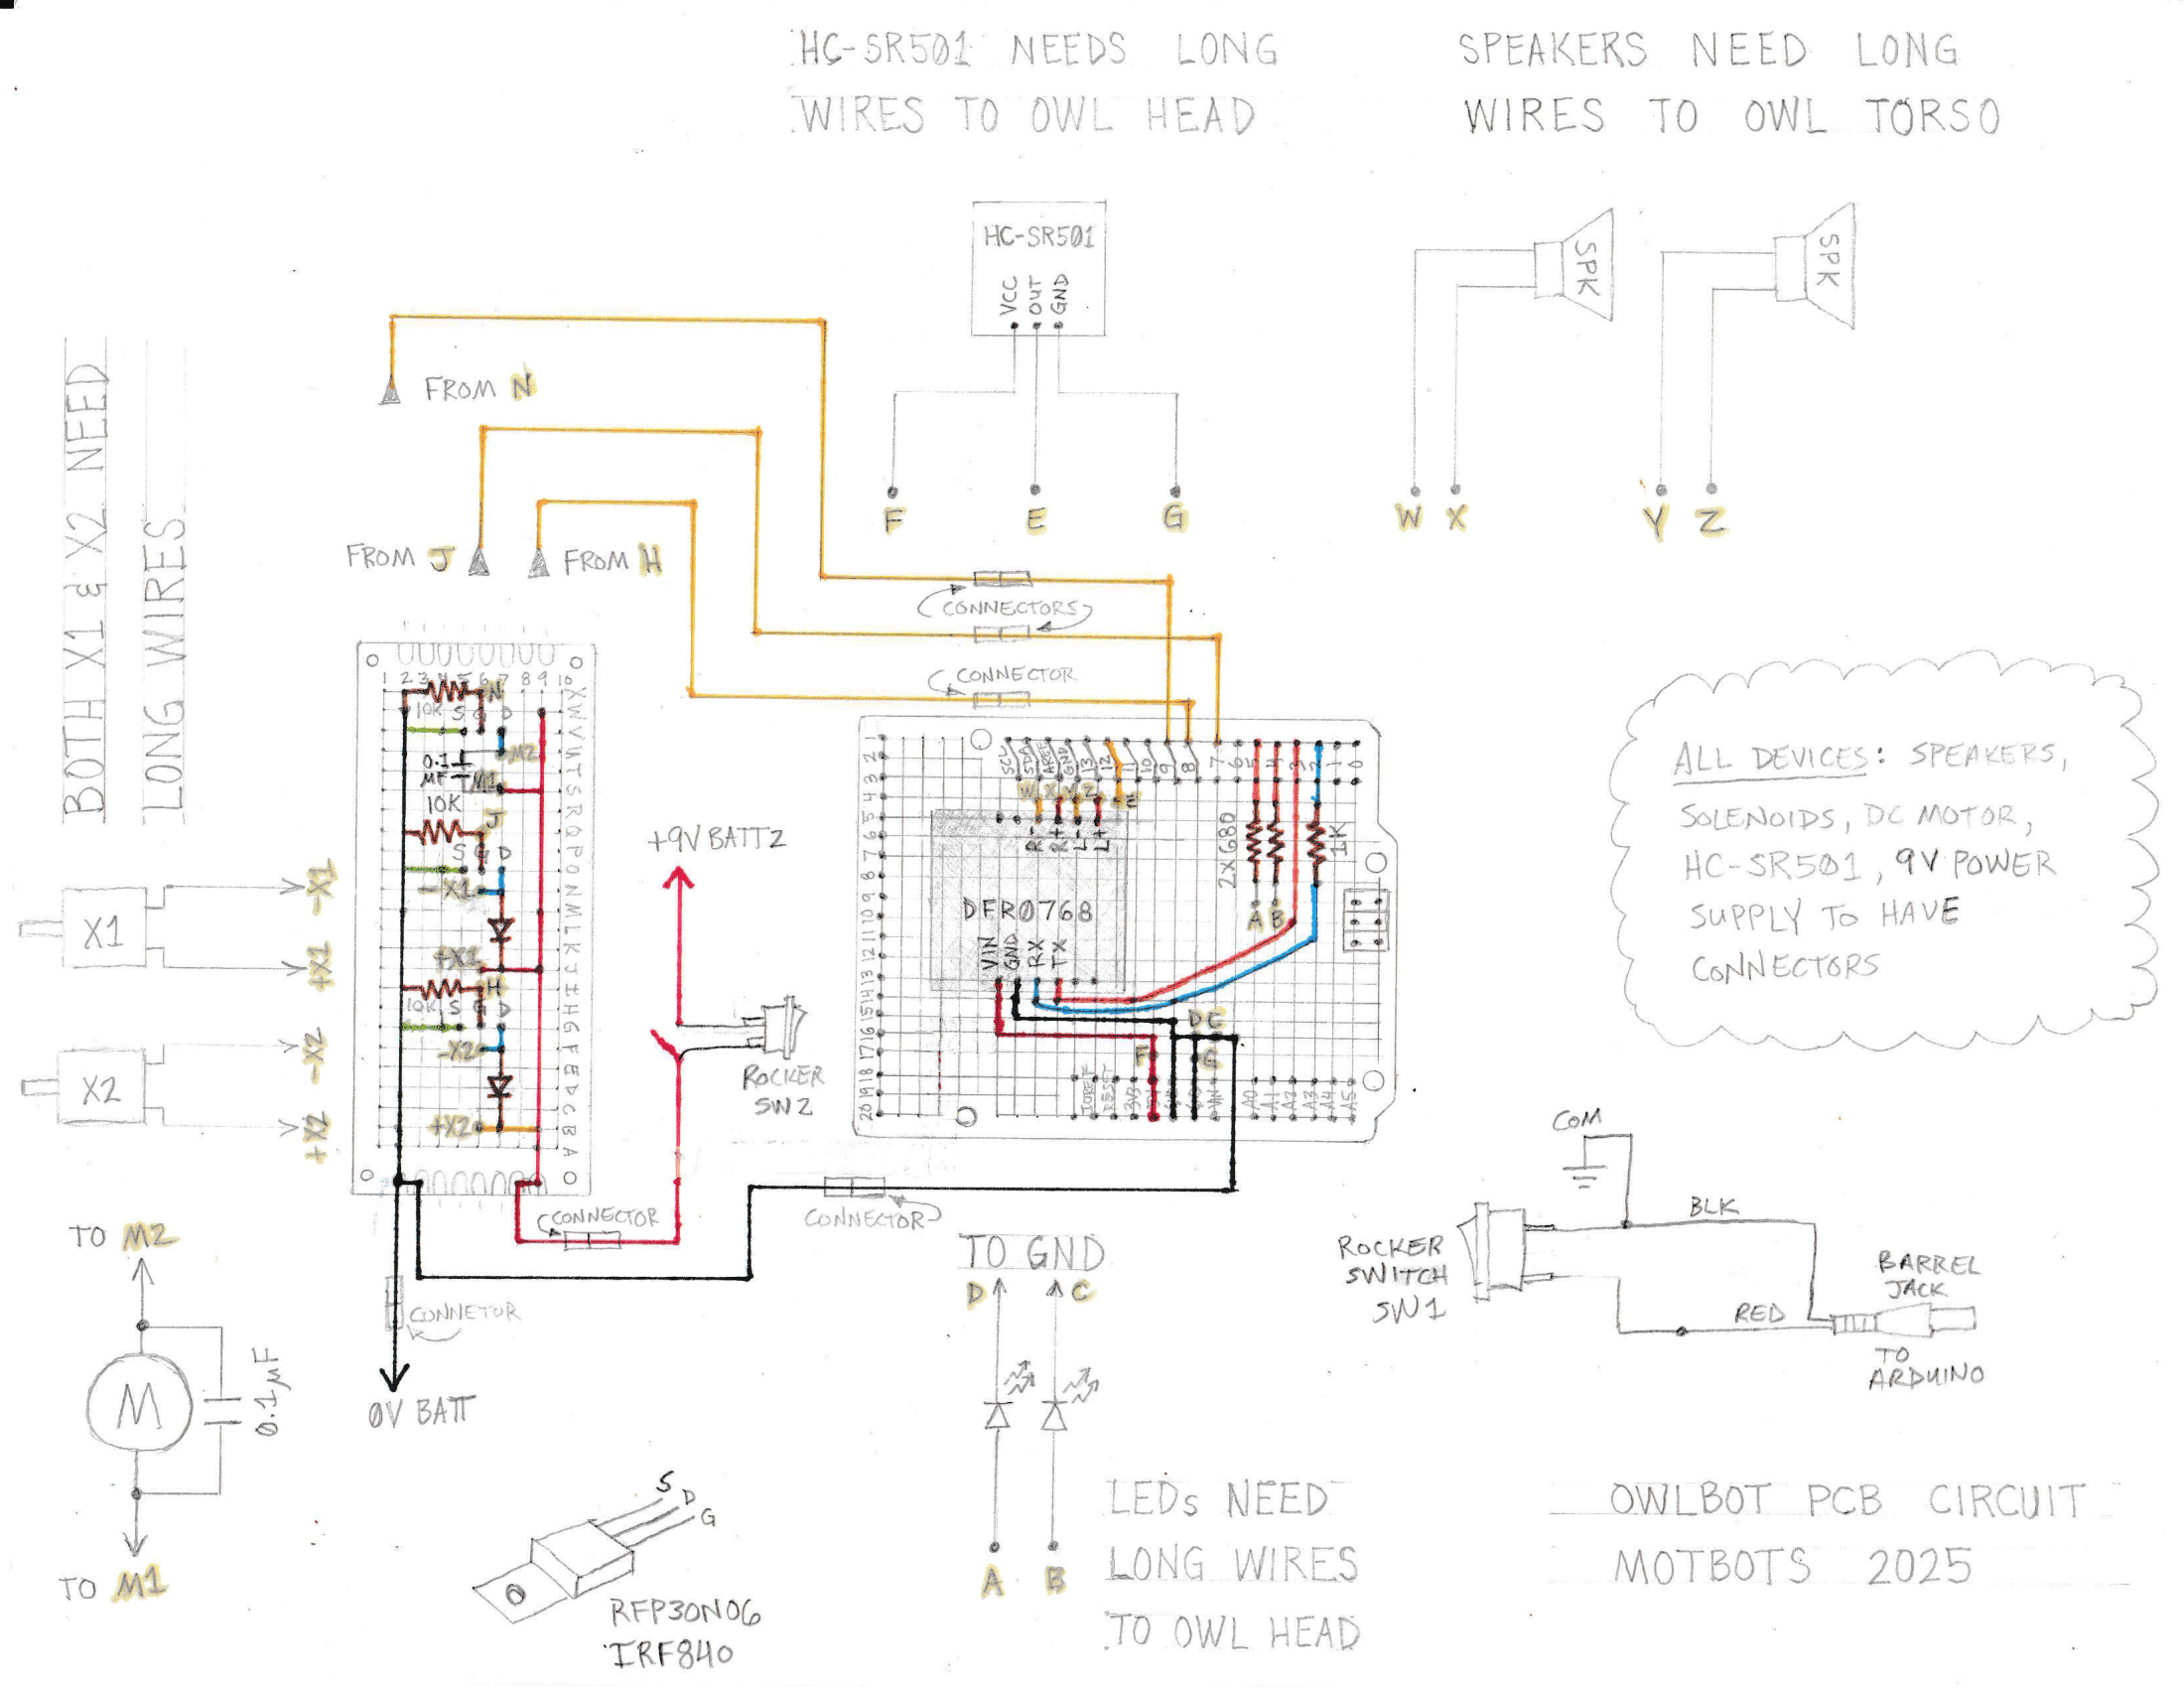 HC-SR501 NEEDS LONG
WIRES TO OWL HEAD
SPEAKERS NEED LONG
WIRES TO OWL TORSO
HC-SR501
VCC
OUT
GND
F
E
G
SPK
SPK
W X
Y Z
BOTH X1 & X2 NEED
LONG WIRES
FROM N
FROM J
FROM H
CONNECTORS
CONNECTOR
1 2 3 4 5 6 7 8 9 10
X W V U T S R Q P O N M L K J I H G F E D C B A
N
10K S G D
M2
0.1
µF
M1
10K
J
S G D
-X1
+X1
H
10K S G D
-X2
+X2
X1
-X1
+X1
X2
-X2
+X2
+9V BATT2
ROCKER
SW2
1 2 3 4 5 6 7 8 9 10 11 12 13 14 15 16 17 18 19 20
SCL SDA AREF GND 13 12 11 10 9 8 7 6 5 4 3 2 1 0
W X Y Z E
R- R+ L- L+
2X680
1K
A B
DFR0768
VIN GND RX TX
D C
F
G
IOREF RESET 3V3 5V VIN A0 A1 A2 A3 A4 A5
ALL DEVICES: SPEAKERS,
SOLENOIDS, DC MOTOR,
HC-SR501, 9V POWER
SUPPLY TO HAVE
CONNECTORS
CONNECTOR
CONNECTOR
CONNETOR
0V BATT
TO M2
M
0.1µF
TO M1
S D G
RFP30N06
IRF840
TO GND
D C
A B
LEDs NEED
LONG WIRES
TO OWL HEAD
COM
BLK
ROCKER
SWITCH
SW1
RED
BARREL
JACK
TO
ARDUINO
OWLBOT PCB CIRCUIT
MOTBOTS 2025